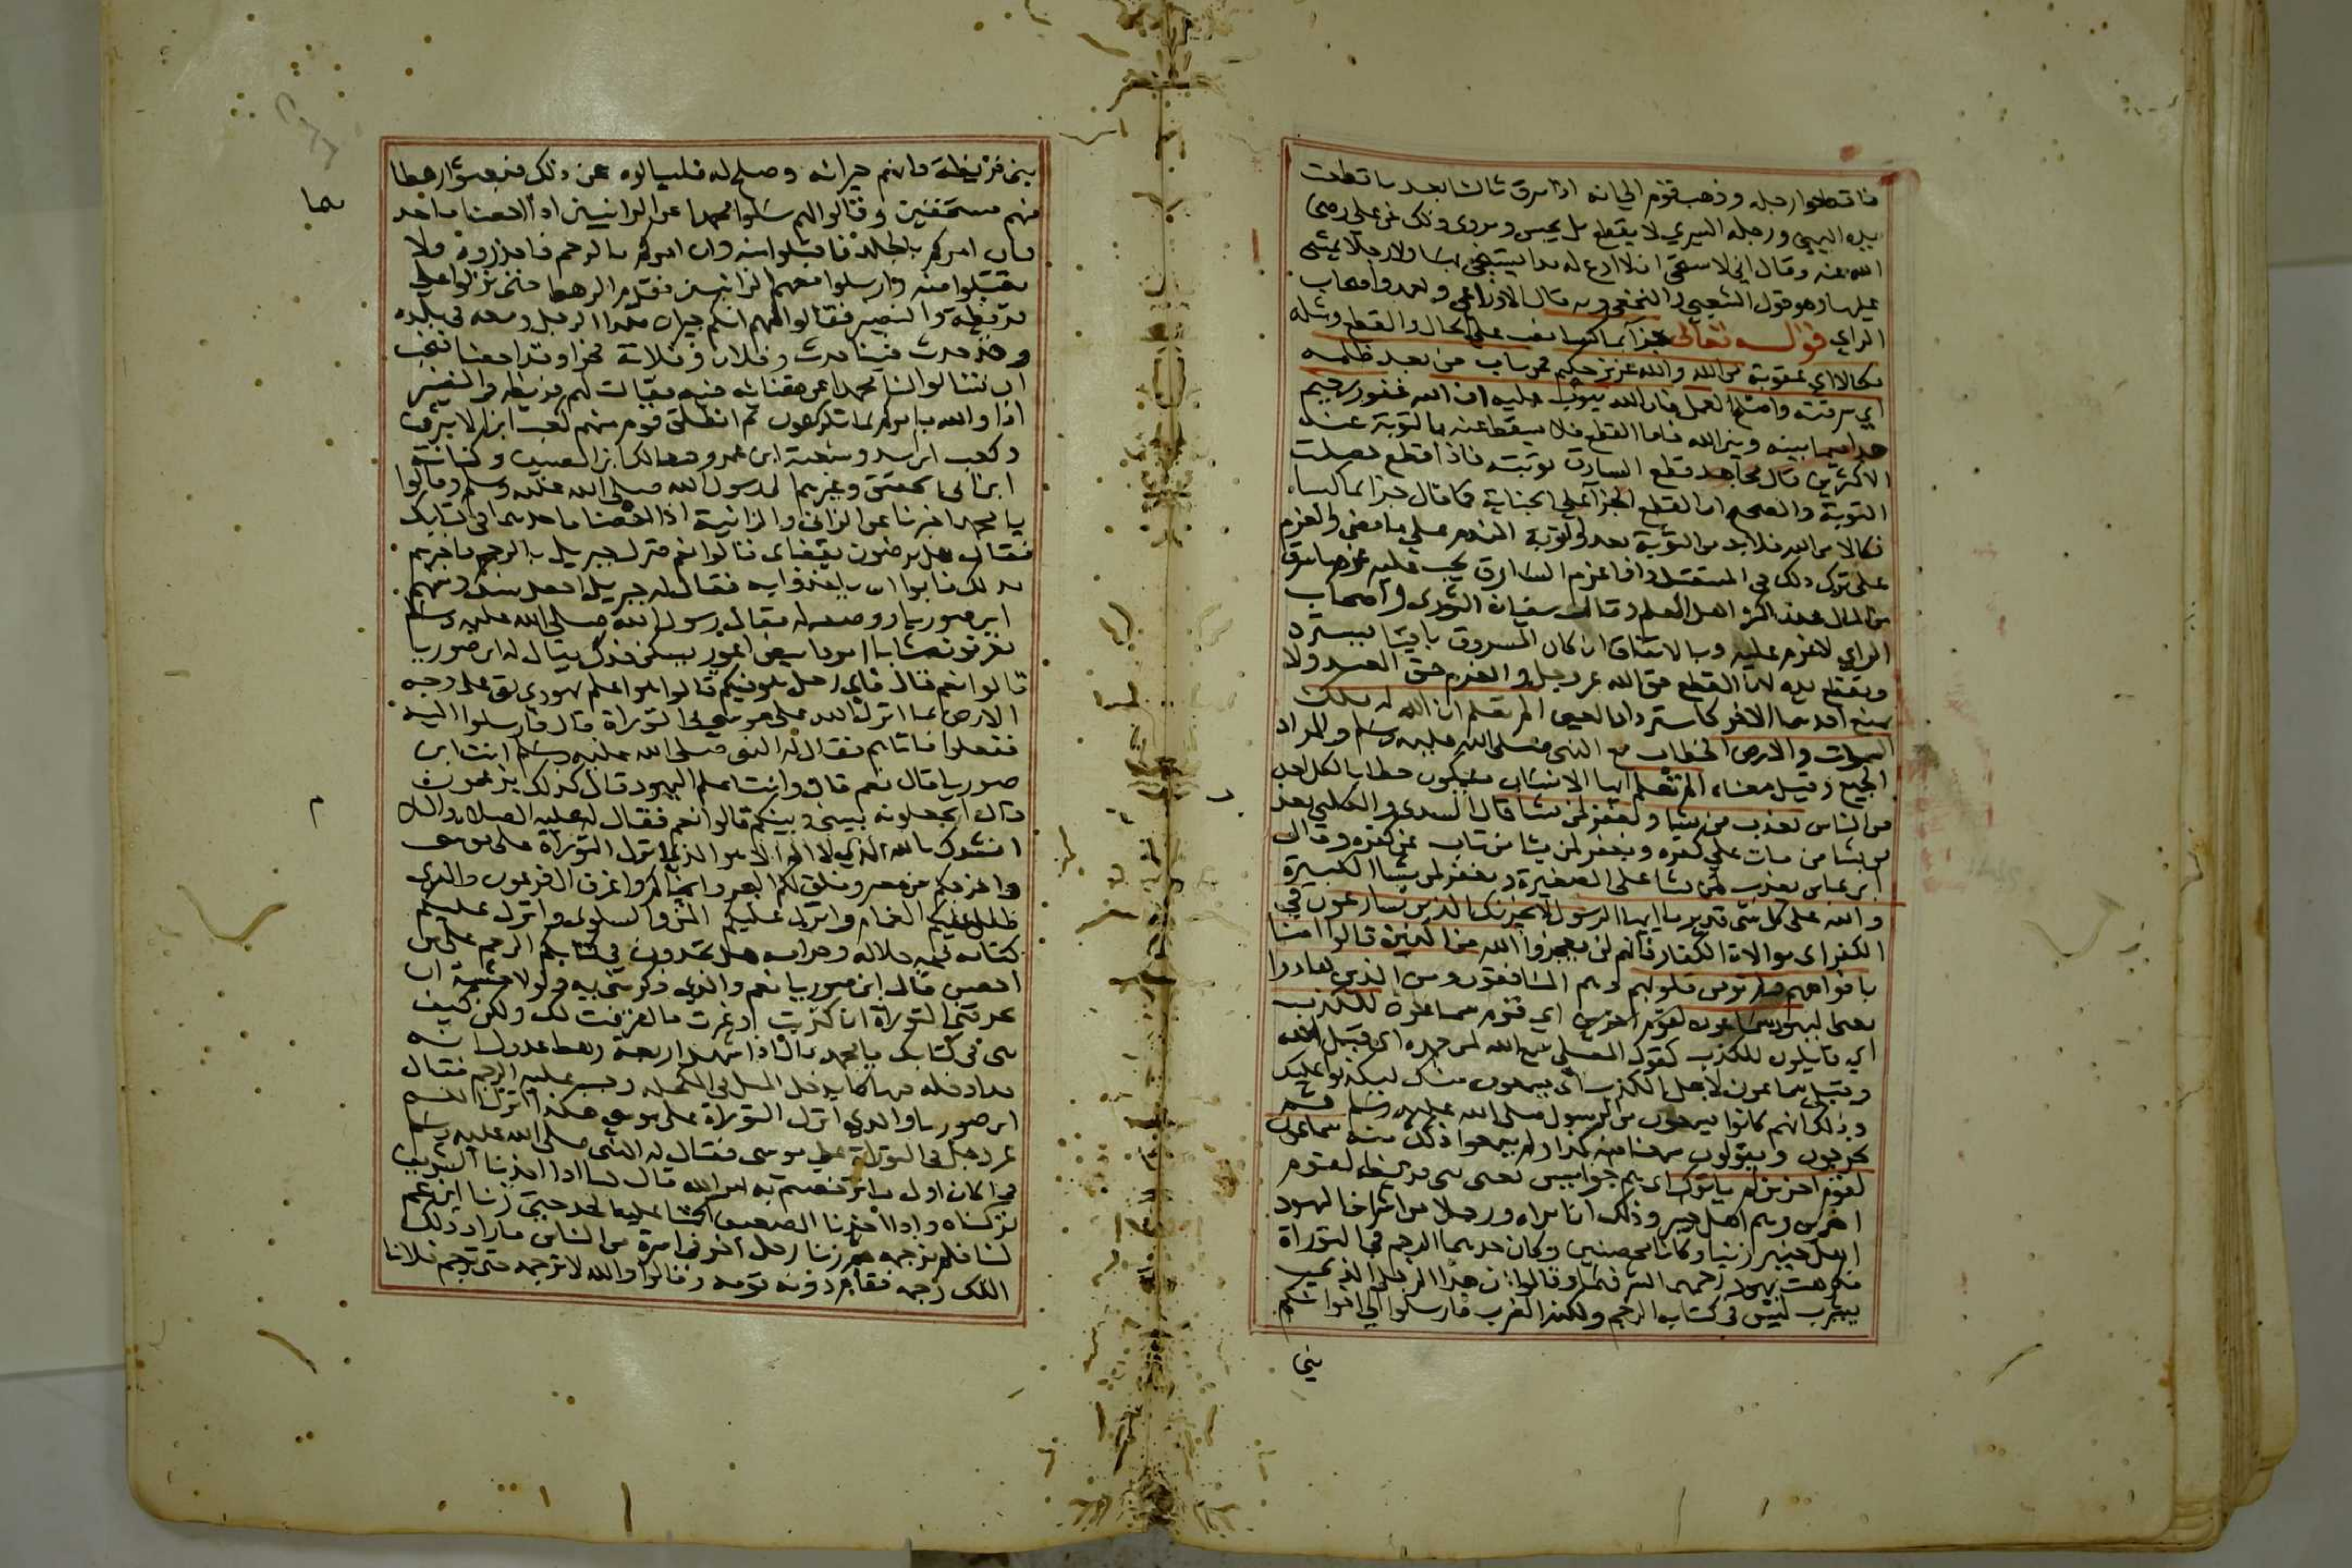 فاقطعوا رجله وذهب قوم الي انه اذا سرق ثالثا بعد ما قطعت
يده اليمني ورجله اليسري لا يقطع بل يحبس ويروى ذلك عن علي رضي
الله عنه وقال اني لاستحي ان لا ادع له يدا يستنجي بها ولا رجلا يمشي
عليها وهو قول الشعبي والنخعي وبه قال الاوزاعي واحمد واصحاب
الراي قوله تعالى جزآ بما كسبا نصب على الحال والقطع ومثله
نكالا اي عقوبة من الله والله عزيز حكيم فمن تاب من بعد ظلمه
اي سرقته واصلح العمل فان الله يتوب عليه ان الله غفور رحيم
هذا فيما بينه وبين الله فاما القطع فلا يسقط عنه بالتوبة عند
الاكثرين قال مجاهد قطع السارق توبته فاذا قطع حصلت
التوبة والصحيح ان القطع للجزآ على الجناية كما قال جزا بما كسبا
نكالا من الله فلا بد من التوبة بعد والتوبة الندم على ما مضى والعزم
على ترك ذلك في المستقبل واذا غرم السارق يجب عليه غرم ما سرق
من المال عند اكثر اهل العلم وقال سفيان الثوري واصحاب
الراي لا غرم عليه وبالاتفاق ان كان المسروق باقيا يسترد
ويقطع يده لان القطع حق الله عز وجل والغرم حق العبد ولا
يمنع احدهما الاخر كاسترداد العين الم تعلم ان الله له ملك
السموات والارض الخطاب مع النبي صلى الله عليه وسلم والمراد
الجميع وقيل معناه الم تعلم ايها الانسان فيكون خطابا لكل احد
من الناس يعذب من يشا ويغفر لمن يشا قال السدي والكلبي يعذب
من يشا من مات على كفره ويغفر لمن يشا من تاب عن كفره وقال
ابن عباس يعذب لمن يشا على الصغيرة ويغفر لمن يشا الكبيرة
والله على كل شي قدير يا ايها الرسول لا يحزنك الذين يسارعون في
الكفر اي موالاة الكفار فانهم لن يعجزوا الله من الذين قالوا امنا
بافواههم ولم تومن قلوبهم وهم المنافقون ومن الذين هادوا
يعني اليهود سماعون لقوم اخرين اي قوم سماعون للكذب
اي قايلون للكذب كقول المصلي سمع الله لمن حمده اي قبل الله
وقيل سماعون لاجل الكذب اي يسمعون منك ليكذبوا عليك
وذلك انهم كانوا يسمعون من الرسول صلى الله عليه وسلم ثم
يخرجون ويقولون سمعنا منه كذا ولم يسمعوا ذلك منه سماعون
لقوم اخرين لم ياتوك اي هم جواسيس يعني بني قريظة لقوم
اخرين وهم اهل خيبر وذلك ان امراة ورجلا من اشراف اليهود
اهل خيبر زنيا وكانا محصنين وكان حدهما الرجم في التوراة
فكرهت يهود رجمهما لشرفهما وقالوا ان هذا الرجل الذي
بيثرب ليس في كتابه الرجم ولكنه الضرب فارسلوا الي اخوانكم
بني
بني قريظة فانهم جيرانه وصلح له فليسالوه عن ذلك فبعثوا رهطا
منهم مستخفين وقالوا لهم سلوا محمدا عن الزانيين اذا احصنا ما حد
هما
فان امركم بالجلد فاقبلوا منه وان امركم بالرجم فاحذروه ولا
تقبلوا منه وارسلوا معهم الزانيين فقدم الرهط حتى نزلوا على
قريظة والنضير فقالوا لهم انكم جيران هذا الرجل ومعه في بلده
وقد حدث فينا حدث وفلان وفلانة فجرا وقد احصنا فنحب
ان تسالوا لنا محمدا عن قضائه فيه فقالت لهم قريظه والنضير
اذا والله يامركم بما تكرهون ثم انطلق قوم منهم كعب ابن الاشرف
وكعب ابن اسد وشعبة ابن عمرو ومالك ابن الصيف وكنانة
ابن ابي الحقيق وغيرهم الى رسول الله صلى الله عليه وسلم وقالوا
يا محمد اخبرنا عن الزاني والزانية اذا احصنا ما حدهما في كتابك
فقال هل ترضون بقضاى قالوا نعم فنزل جبريل بالرجم فاخبرهم
بذلك فابوا ان ياخذوا به فقال له جبريل اجعل بينك وبينهم
ابن صوريا ووصفه له فقال رسول الله صلى الله عليه وسلم
تعرفون شابا امردا ابيض اعور يسكن فدك يقال له ابن صوريا
قالوا نعم قال فاي رجل هو فيكم قالوا هو اعلم يهودي بقى على وجه
الارض بما انزل الله على موسى في التوراة قال فارسلوا اليه
ففعلوا فاتاهم فقال له النبي صلى الله عليه وسلم انت ابن
صوريا قال نعم قال وانت اعلم اليهود قال كذلك يزعمون
قال اتجعلونه بيني وبينكم قالوا نعم فقال له عليه الصلاة والسلا
م
انشدك بالله الذي لا اله الا هو الذي انزل التوراة على موسى
واخرجكم من مصر وفلق لكم البحر وانجاكم واغرق ال فرعون والذي
ظلل عليكم الغمام وانزل عليكم المن والسلوى وانزل عليكم
كتابه فيه حلاله وحرامه هل تجدون في كتابكم الرجم على من
احصن قال ابن صوريا نعم والذي ذكرتني به ولولا خشية ان
تحرقني التوراة ان كذبت او غيرت ما اعترفت لك ولكن كيف
هي في كتابك يا محمد قال اذا شهد اربعة رهط عدول انه
قد ادخله فيها كما يدخل الميل في المكحلة وجب عليه الرجم فقال
ابن صوريا والذي انزل التوراة على موسى هكذا انزل الله
عز وجل في التوراة على موسى فقال له النبي صلى الله عليه وسلم
فما كان اول ما ترخصتم به امر الله قال كنا اذا اخذنا الشريف
تركناه واذا اخذنا الضعيف اقمنا عليه الحد حتى زنا ابن عم
لنا فلم نرجمه ثم زنا رجل اخر في امرة من الناس فاراد ذلك
الملك رجمه فقام دونه قومه وقالوا والله لا ترجمه حتى ترجم فلانا